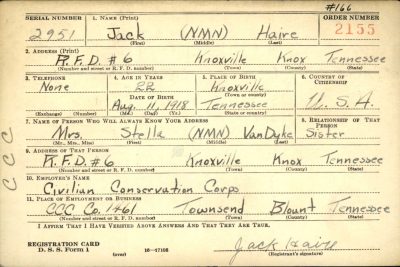 #166
SERIAL NUMBER 1. NAME (Print) ORDER NUMBER
2951 Jack (NMN) Haire 2155
(First) (Middle) (Last)
2. ADDRESS (Print)
R.F.D. #6 Knoxville Knox Tennessee
(Number and street or R. F. D. number) (Town) (County) (State)
3. TELEPHONE 4. AGE IN YEARS 5. PLACE OF BIRTH 6. COUNTRY OF CITIZENSHIP
None 22 Knoxville
DATE OF BIRTH (Town or county)
Aug. 11, 1918 Tennessee U.S.A.
(Exchange) (Number) (Mo.) (Day) (Yr.) (State or country)
7. NAME OF PERSON WHO WILL ALWAYS KNOW YOUR ADDRESS 8. RELATIONSHIP OF THAT PERSON
Mrs. Stella (NMN) VanDyke Sister
(Mr., Mrs., Miss) (First) (Middle) (Last)
9. ADDRESS OF THAT PERSON
R.F.D. #6 Knoxville Knox Tennessee
(Number and street or R. F. D. number) (Town) (County) (State)
10. EMPLOYER'S NAME
Civilian Conservation Corps
11. PLACE OF EMPLOYMENT OR BUSINESS
CCC Co. 1461 Townsend Blount Tennessee
(Number and street or R. F. D. number) (Town) (County) (State)
I AFFIRM THAT I HAVE VERIFIED ABOVE ANSWERS AND THAT THEY ARE TRUE.
REGISTRATION CARD
D. S. S. Form 1 (over) 16—17105 Jack Haire
(Registrant's signature)
CCC